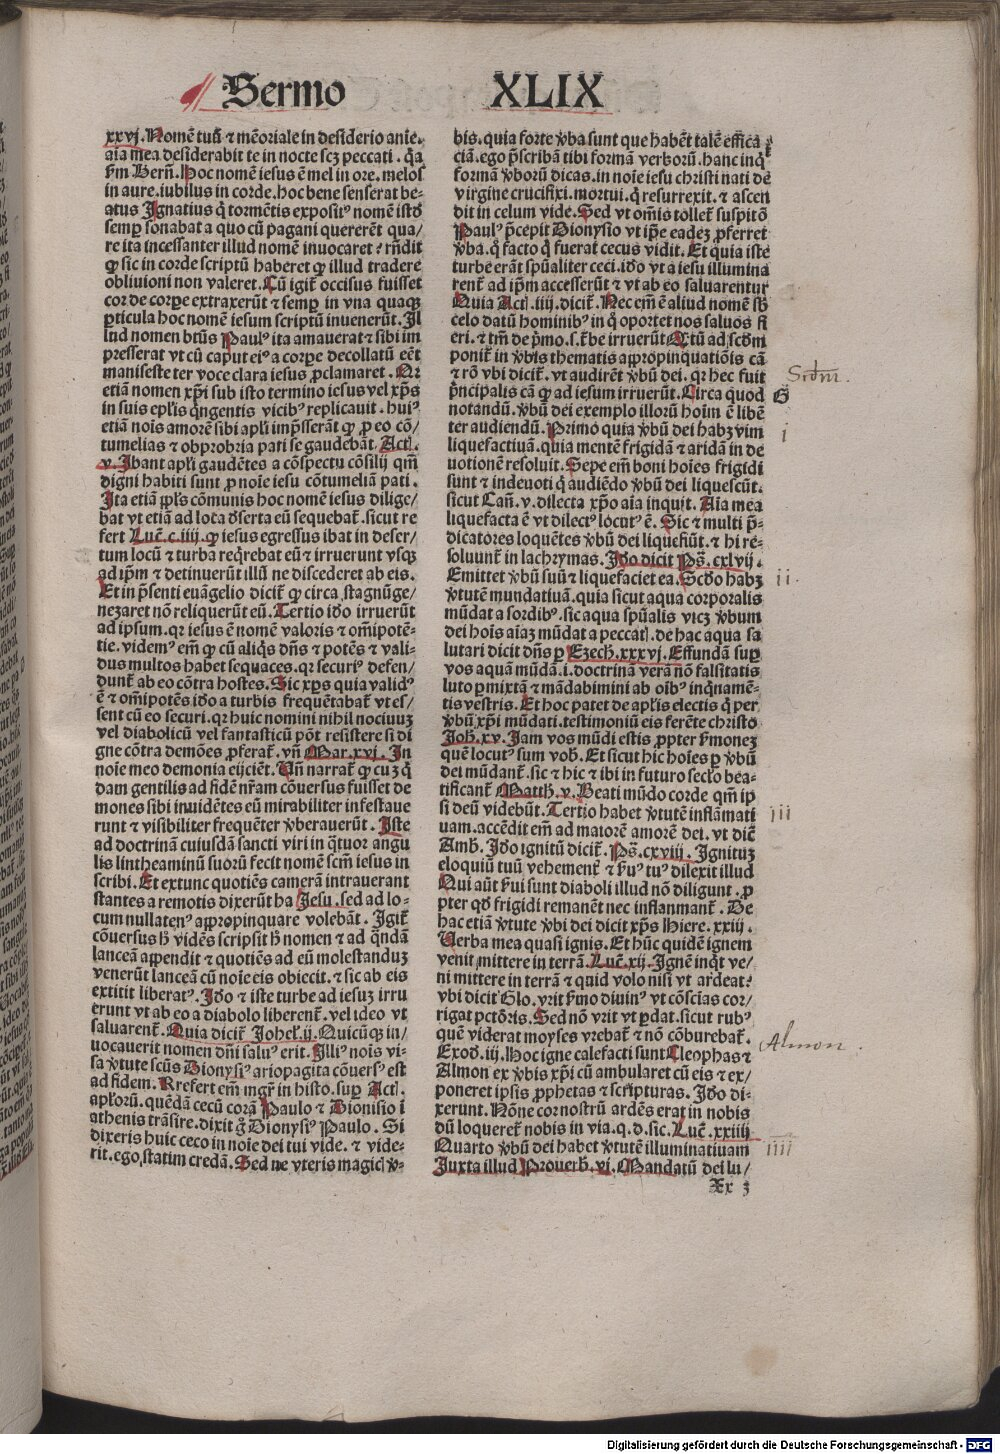 Sermo XLIX
xxvj. Nomē tuū ⁊ mēoriale in desiderio anīe.
aīa mea desiderabit te in nocte scz peccati. q̄a
ẜm Berñ. Hoc nomē iesus ē mel in ore. melos
in aure. iubilus in corde. hoc bene senserat be-
atus Ignatius q̇ tormētis expositꝰ nomē istd̄
semꝑ sonabat a quo cū pagani quererēt qua/
re ita incessanter illud nomē inuocaret ⁊ rn̄dit
ꝙ sic in corde scriptū haberet ꝙ illud tradere
obliuioni non valeret. Cū igit̄ occisus fuisset
cor de corꝑe extraxerūt ⁊ semꝑ in vna quaqꝫ
ꝑticula hoc nomē iesum scriptū inuenerūt. Il
lud nomen btūs Paulꝰ ita amauerat ⁊ sibi im
presserat vt cū caput eiꝰ a corꝑe decollatū eēt
manifeste ter voce clara iesus ꝓclamaret. Qr
etiā nomen xp̄i sub isto termino iesus vel xp̄s
in suis epl̄is q̇ngentis vicibꝰ replicauit. huiꝰ
etiā nois amorē sibi apl̄i imp̄sserāt ꝙ ꝓ eo cō/
tumelias ⁊ obprobria pati se gaudebāt. Act.
v. Ibant apl̄i gaudētes a cōspectu cōsilij qm̄
digni habiti sunt ꝓ noīe iesu cōtumeliā pati.
Ita etiā ppl̄s cōmunis hoc nomē iesus dilige/
bat vt etiā ad loca dserta eū sequebat̄. sicut re
fert Luc̄. c. iiij. ꝙ iesus egressus ibat in deser/
tum locū ⁊ turba req̇rebat eū ⁊ irruerunt vsqꝫ
ad ip̄m ⁊ detinuerūt illū ne discederet ab eis.
Et in p̄senti euāgelio dicit̄ ꝙ circa stagnū ge/
nezaret nō reliquerūt eū. Tertio ido irruerūt
ad ipsum. qr iesus ē nomē valoris ⁊ om̄ipotē-
tie. videmꝰ em̄ ꝙ cū aliq̇s dn̄s ⁊ potēs ⁊ vali-
dus multos habet sequaces. qr securiꝰ defen/
dunt̄ ab eo cōtra hostes. Sic xp̄s quia validꝰ
ē ⁊ om̄ipotēs ido a turbis frequētabat̄ vt es/
sent cū eo securi. qr huic nomini nihil nociuuꝫ
vel diabolicū vel fantasticū pōt resistere si di
gne cōtra demōes ꝓferat̄. vn̄ Mar. xvi. In
noīe meo demonia eijciēt. Un̄ narrat̄ ꝙ cuꝫ q̇
dam gentilis ad fidē nr̄am cōuersus fuisset de
mones sibi inuidētes eū mirabiliter infestaue
runt ⁊ visibiliter frequēter v̄berauerūt. Iste
ad doctrinā cuiusdā sancti viri in q̇tuor angu
lis lintheaminū suorū fecit nomē scm̄ iesus in
scribi. Et extunc quotiēs camerā intrauerant
stantes a remotis dixerūt ha Jesu. sed ad lo-
cum nullatenꝰ appropinquare volebāt. Igit̄
cōuersus h̄ vidēs scripsit h̄ nomen ⁊ ad q̄ndā
lanceā appendit ⁊ quotiēs ad eū molestanduꝫ
venerūt lanceā cū noīe eis obiecit. ⁊ sic ab eis
extitit liberatꝰ. Ido ⁊ iste turbe ad iesuꝫ irru
erunt vt ab eo a diabolo liberent̄. vel ideo vt
saluarent̄. Quia dicit̄ Johel. ij. Quicūqꝫ in/
uocauerit nomen dn̄i saluꝰ erit. Illiꝰ nois vi-
sa v̄tute scūs Dionysiꝰ ariopagita cōuersꝰ est
ad fidem. Rrefert em̄ mgr̄ in histo. suꝑ Act.
apl̄orū. quēdā cecū corā Paulo ⁊ Dionisio ī
athenis trāsire. dixit g̊ Dionysiꝰ Paulo. Si
dixeris huic ceco in noīe dei tui vide. ⁊ vide-
rit. ego statim credā. Sed ne vteris magicꝭ v̄-
bis. quia forte v̄ba sunt que habēt talē effica
ciā. ego p̄scribā tibi formā verborū. hanc inq̇
formā v̄borū dicas. in noīe iesu christi nati de
virgine crucifixi. mortui. q̇ resurrexit. ⁊ ascen
dit in celum vide. Sed vt om̄is tolleꝛ̄ suspitō
Paulꝰ p̄cepit Dionysio vt ip̄e eadeꝫ ꝓferret
v̄ba. q̇ facto q̇ fuerat cecus vidit. Et quia iste
turbe erāt sp̄ualiter ceci. ido vt a iesu illumina
rent̄ ad ip̄m accesserūt ⁊ vt ab eo saluarentur
Quia Act. iiij. dicit̄. Nec em̄ ē aliud nomē sb̄
celo datū hominibꝰ in q̇ oportet nos saluos fi
eri. ⁊ tm̄ de p̄mo. s. t̄be irruerūt Actū ad scdm
ponit̄ in v̄bis thematis appropinquatiōis cā
⁊ rō vbi dicit̄. vt audirēt v̄bū dei. qr hec fuit
p̄ncipalis cā ꝙ ad iesum irruerūt. Circa quod
notandū. v̄bū dei exemplo illorū hoīm ē libē
ter audiendū. Primo quia v̄bū dei habꝫ vim
liquefactiuā. quia mentē frigidā ⁊ aridā in de
uotionē resoluit. Sepe em̄ boni hoīes frigidi
sunt ⁊ indeuoti q̇ audiēdo v̄bū dei liquescūt.
sicut Can̄. v. dilecta xp̄o aīa inquit. Aīa mea
liquefacta ē vt dilectꝰ locutꝰ ē. Sic ⁊ multi p̄-
dicatores loquētes v̄bū dei liquefiūt. ⁊ hi re-
soluunt̄ in lachrymas. Ido dicit Ps̄. cxlvij.
Emittet v̄bū suū ⁊ liquefaciet ea. Scdo habꝫ
v̄tutē mundatiuā. quia sicut aqua corporalis
mūdat a sordibꝰ. sic aqua sp̄ualis vicꝫ v̄bum
dei hoīs aīaꝫ mūdat a peccatꝭ. de hac aqua sa
lutari dicit dn̄s ꝑ Ezech. xxxvj. Effundā suꝑ
vos aquā mūdā. i. doctrinā verā nō falsitatis
luto ꝑmixtā ⁊ mādabimini ab oībꝰ inq̇namē-
tis vestris. Et hoc patet de apl̄is electis q̇ per
v̄bū xp̄i mūdati. testimoniū eis ferēte christo
Joh̄. xv. Jam vos mūdi estis ꝓpter ẜmoneꝫ
quē locutꝰ sum vob̄. Et sicut hic hoīes ꝑ v̄bū
dei mūdant̄. sic ⁊ hic ⁊ ibi in futuro seclo bea-
tificant̄ Matth̄. v. Beati mūdo corde qm̄ ip
si deū videbūt. Tertio habet v̄tutē inflāmati
uam. accēdit em̄ ad maiorē amorē dei. vt dic̄
Amb̄. Ido ignitū dicit̄. Ps̄. cxviij. Ignituꝫ
eloquiū tuū vehement̄ ⁊ ẜuꝰ tuꝰ dilexit illud
Qui aūt ẜui sunt diaboli illud nō diligunt. ꝓ
pter qd̄ frigidi remanēt nec inflanmant̄. De
hac etiā v̄tute v̄bi dei dicit xp̄s Hiere. xxiij.
Verba mea quasi ignis. Et hūc quidē ignem
venit mittere in terrā. Luc̄. xij. Ignē inq̇t ve/
ni mittere in terrā ⁊ quid volo nisi vt ardeat.
vbi dicit Glo. vrit ẜmo diuinꝰ vt cōscias cor/
rigat pctōris. Sed nō vrit vt ꝑdat. sicut rubꝰ
quē viderat moyses vrebat̄ ⁊ nō cōburebat̄.
Exod̄. iij. Hoc igne calefacti sunt Cleophas ⁊
Almon ex v̄bis xp̄i cū ambularet cū eis ⁊ ex/
poneret ipsis ꝓphetas ⁊ scripturas. Ido di-
xerunt. Nōne cor nostrū ardēs erat in nobis
dū loqueret̄ nobis in via. q. d. sic. Luc̄. xxiiij
Quarto v̄bū dei habet v̄tutē illuminatiuam
Juxta illud Prouerb̄. vi. Mandatū dei lu/
Xx 3
G
i
ii
iii
Almon.
iiii
Digitalisierung gefördert durch die Deutsche Forschungsgemeinschaft - DFG